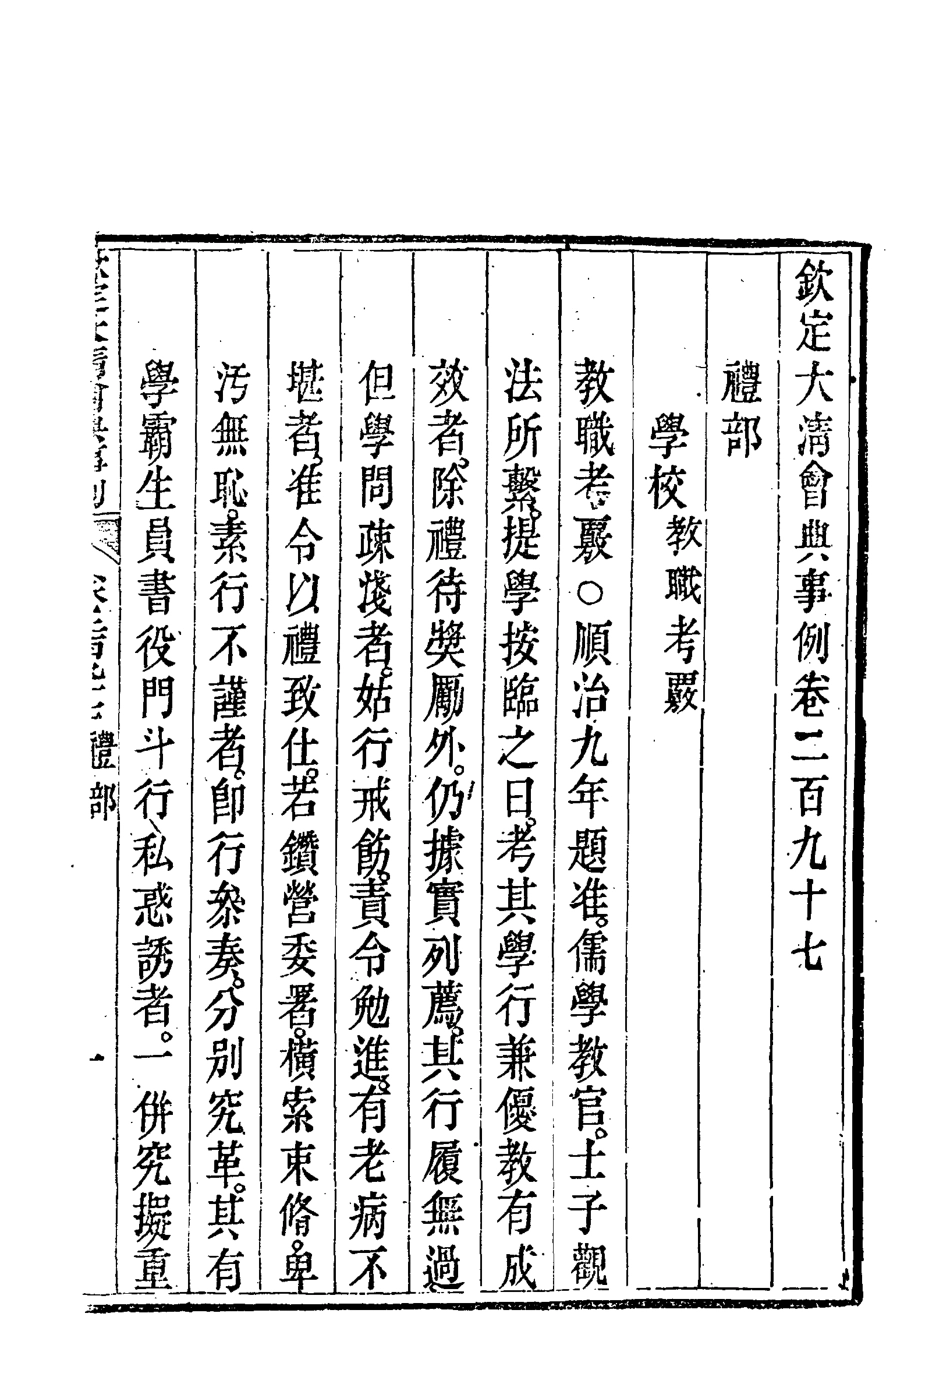 欽定大淸會典事例卷二百九十七
禮部
學校教職考覈
教職考覈○順治九年題准。儒學教官。士子觀
法所繫。提學按臨之日。考其學行兼優教有成
效者。除禮待獎勵外。仍據實列薦。其行履無過
但學問疎淺者。姑行戒飭。責令勉進。有老病不
堪者。准令以禮致仕。若鑽營委署。橫索束脩。卑
汚無恥。素行不謹者。卽行叅奏。分別究革。其有
學霸生員書役門斗行私惑誘者。一併究擬重
欽定大淸會典事例 卷二百九十七 禮部 一